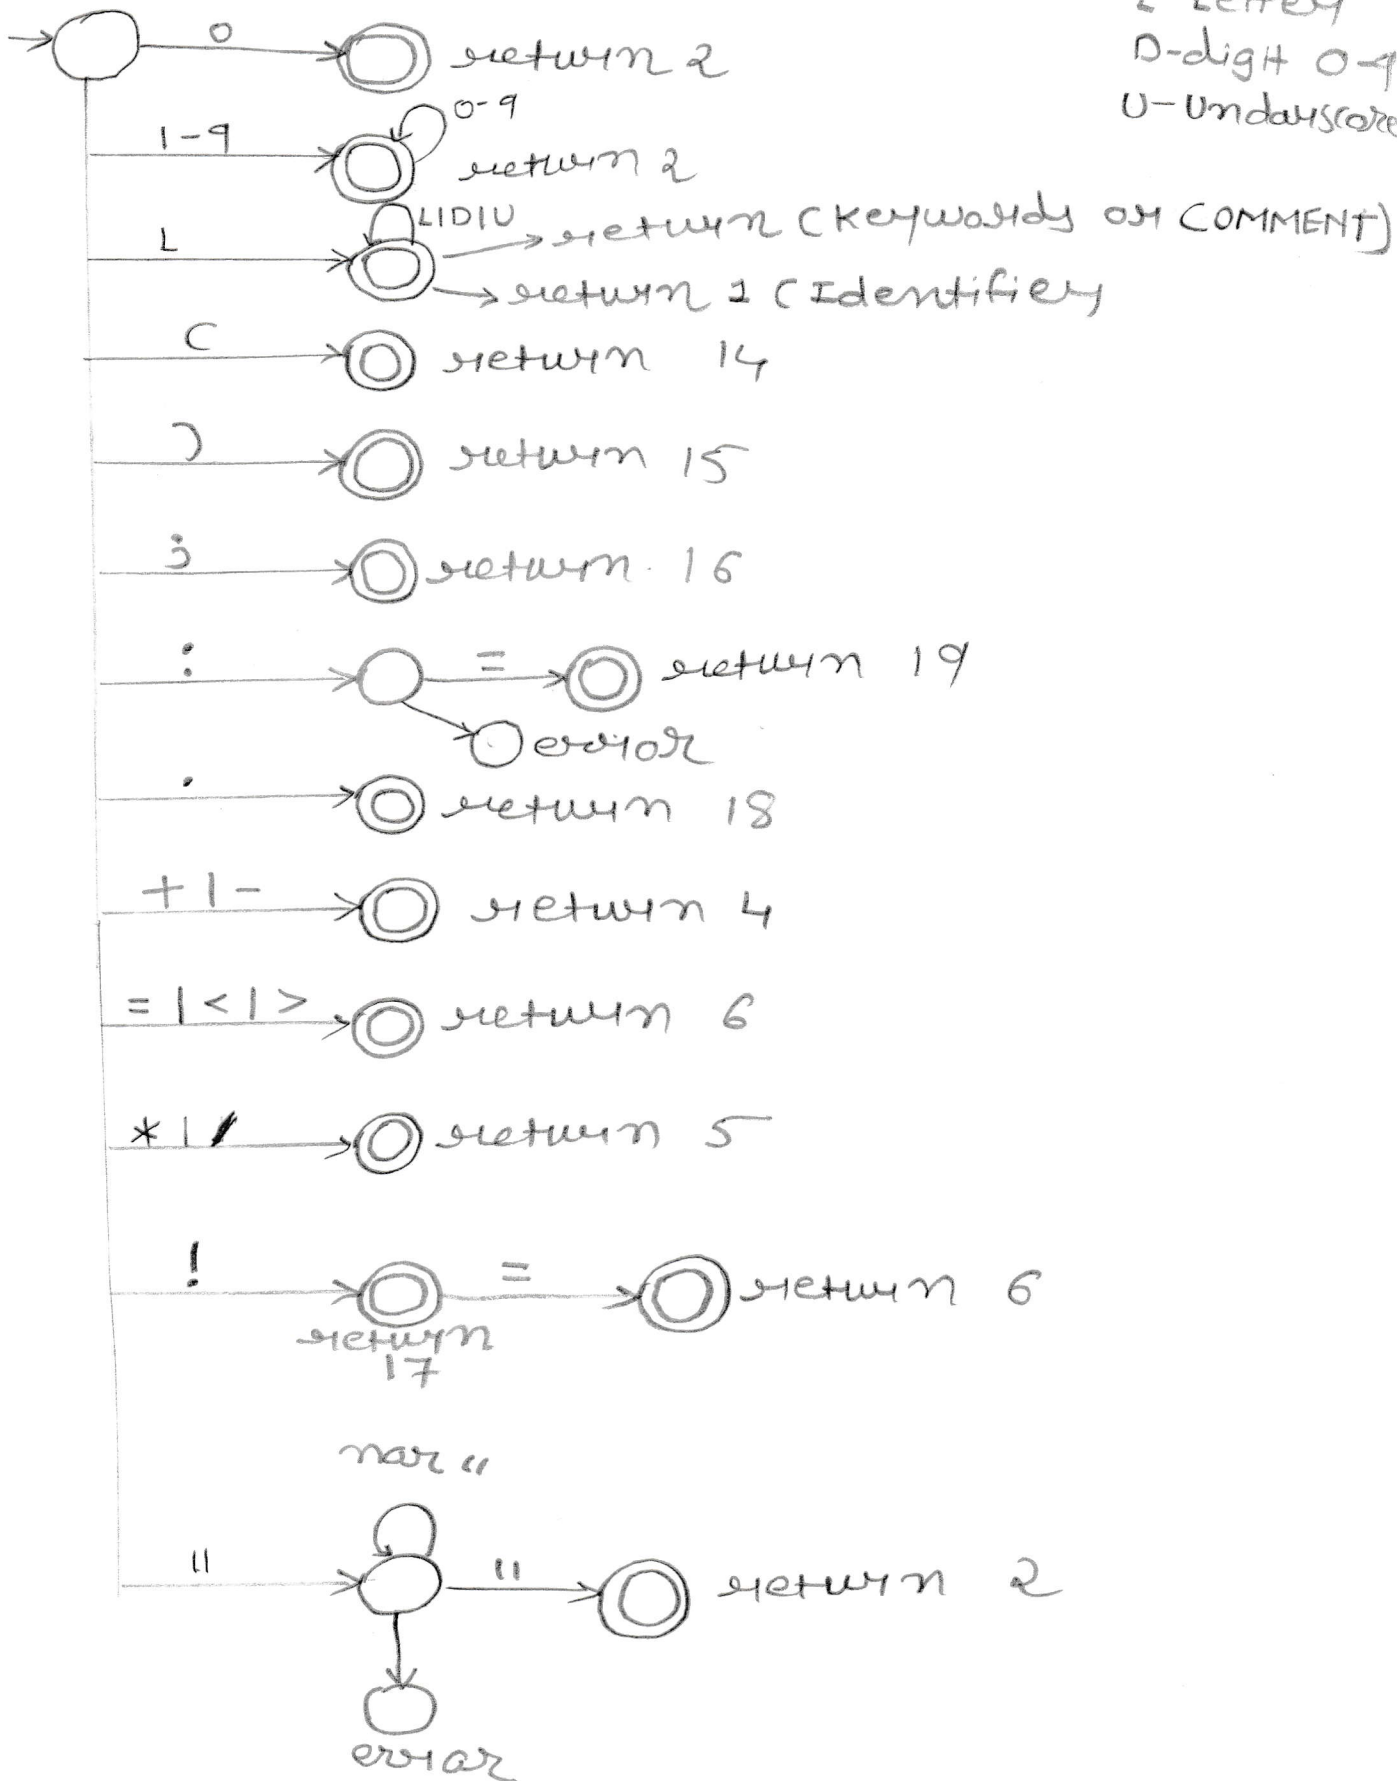 L Letter
0 return 2
D-digit 0-9
U-Underscore
0-9
1-9 return 2
L|D|U
L return (Keywords or COMMENT)
return 1 (Identifier
( return 14
) return 15
; return 16
: = return 19
error
. return 18
+ | - return 4
= | < | > return 6
* | / return 5
! = return 6
return
17
nor "
" " return 2
error